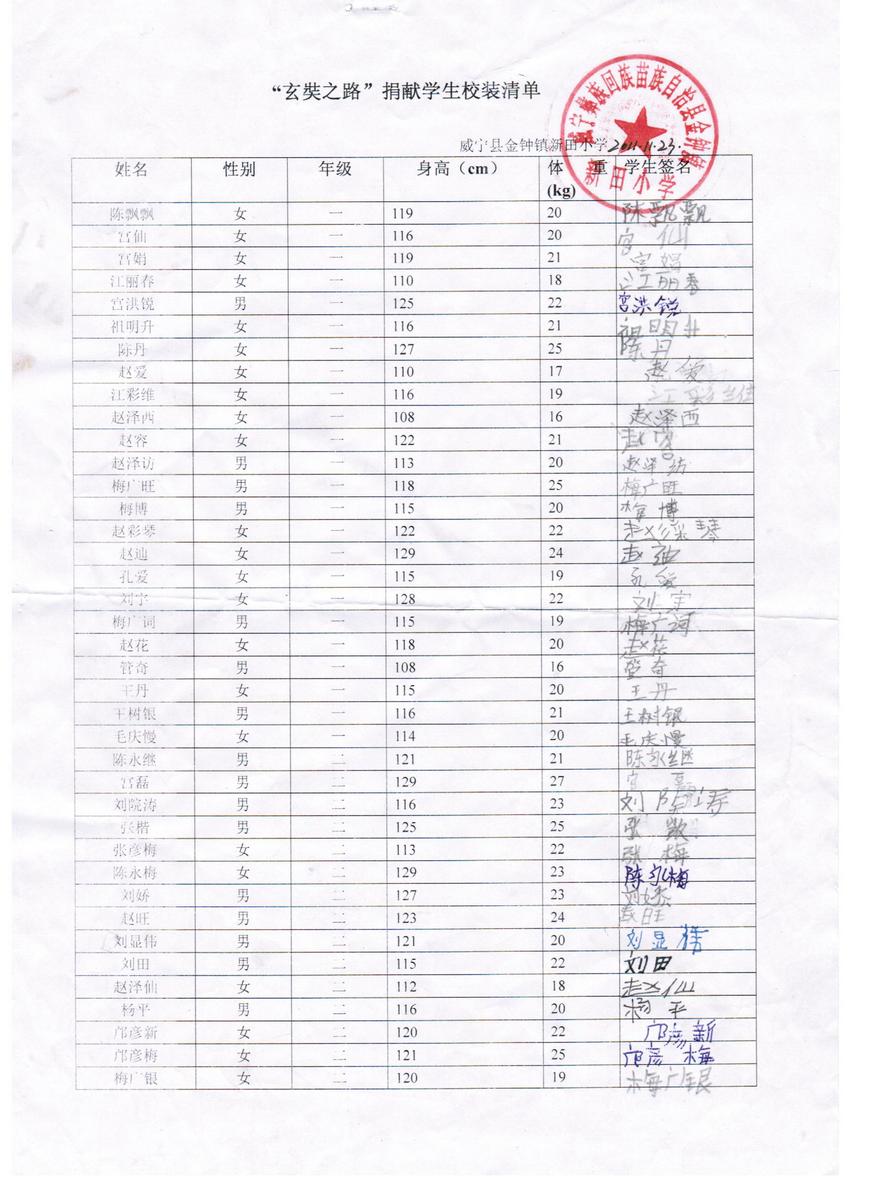 “玄奘之路”捐献学生校装清单
威宁彝族回族苗族自治县金钟镇
新田小学
威宁县金钟镇新田小学 2011.11.23.
姓名 性别 年级 身高（cm） 体重(kg) 学生签名
陈飘飘 女 一 119 20 陈飘飘
宫仙 女 一 116 20 宫仙
宫娟 女 一 119 21 宫娟
江丽春 女 一 110 18 江丽春
宫洪锐 男 一 125 22 宫洪锐
祖明升 女 一 116 21 祖明升
陈丹 女 一 127 25 陈丹
赵爱 女 一 110 17 赵爱
江彩维 女 一 116 19 江彩维
赵泽西 女 一 108 16 赵泽西
赵容 女 一 122 21 赵容
赵泽访 男 一 113 20 赵泽访
梅广旺 男 一 118 25 梅广旺
梅博 男 一 115 20 梅博
赵彩琴 女 一 122 22 赵彩琴
赵迪 女 一 129 24 赵迪
孔爱 女 一 115 19 孔爱
刘宇 女 一 128 22 刘宇
梅广词 男 一 115 19 梅广词
赵花 女 一 118 20 赵花
管奇 男 一 108 16 管奇
王丹 女 一 115 20 王丹
王树银 男 一 116 21 王树银
毛庆慢 女 一 114 20 毛庆慢
陈永继 男 二 121 21 陈永继
宫磊 男 二 129 27 宫磊
刘院涛 男 二 116 23 刘院涛
张楷 男 二 125 25 张
张彦梅 女 二 113 22 张梅
陈永梅 女 二 129 23 陈永梅
刘娇 男 二 127 23 刘娇
赵旺 男 二 123 24 赵旺
刘显伟 男 二 121 20 刘显伟
刘田 男 二 115 22 刘田
赵泽仙 女 二 112 18 赵仙
杨平 男 二 116 20 杨平
邝彦新 女 二 120 22 邝彦新
邝彦梅 女 二 121 25 邝彦梅
梅广银 女 二 120 19 梅广银